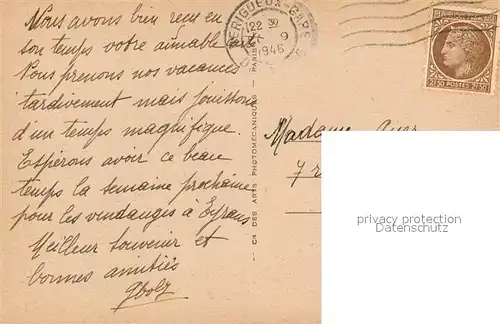 Nous avons bien reçu en
son temps votre aimable
Nous prenons nos vacances
tardivement mais jouissons
d'un temps magnifique.
Espérons avoir ce beau
temps la semaine prochaine
pour les vendanges à Eyrans
Meilleur souvenir et
bonnes amitiés
PERIGUEUX-GARE
22 30
9
1946
POSTES
Cie DES ARTS PHOTOMÉCANIQUES - PARIS
Madame
7 r
privacy protection
VEIKKOS.COM